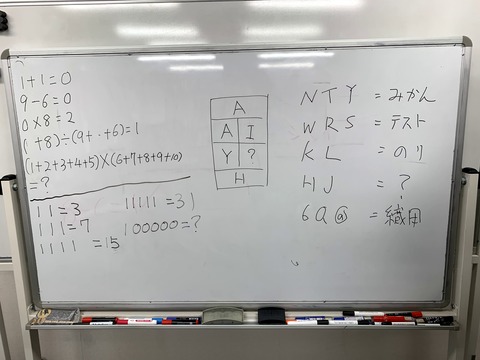 1+1=0
9-6=0
0×8=2
(1+8)÷(9+・+6)=1
(1+2+3+4+5)×(6+7+8+9+10)
=?
11=3
111=7
1111=15
11111=31
100000=?
A
A I
Y ?
H
NTY=みかん
WRS=テスト
KL=のり
HJ=?
6Q@=